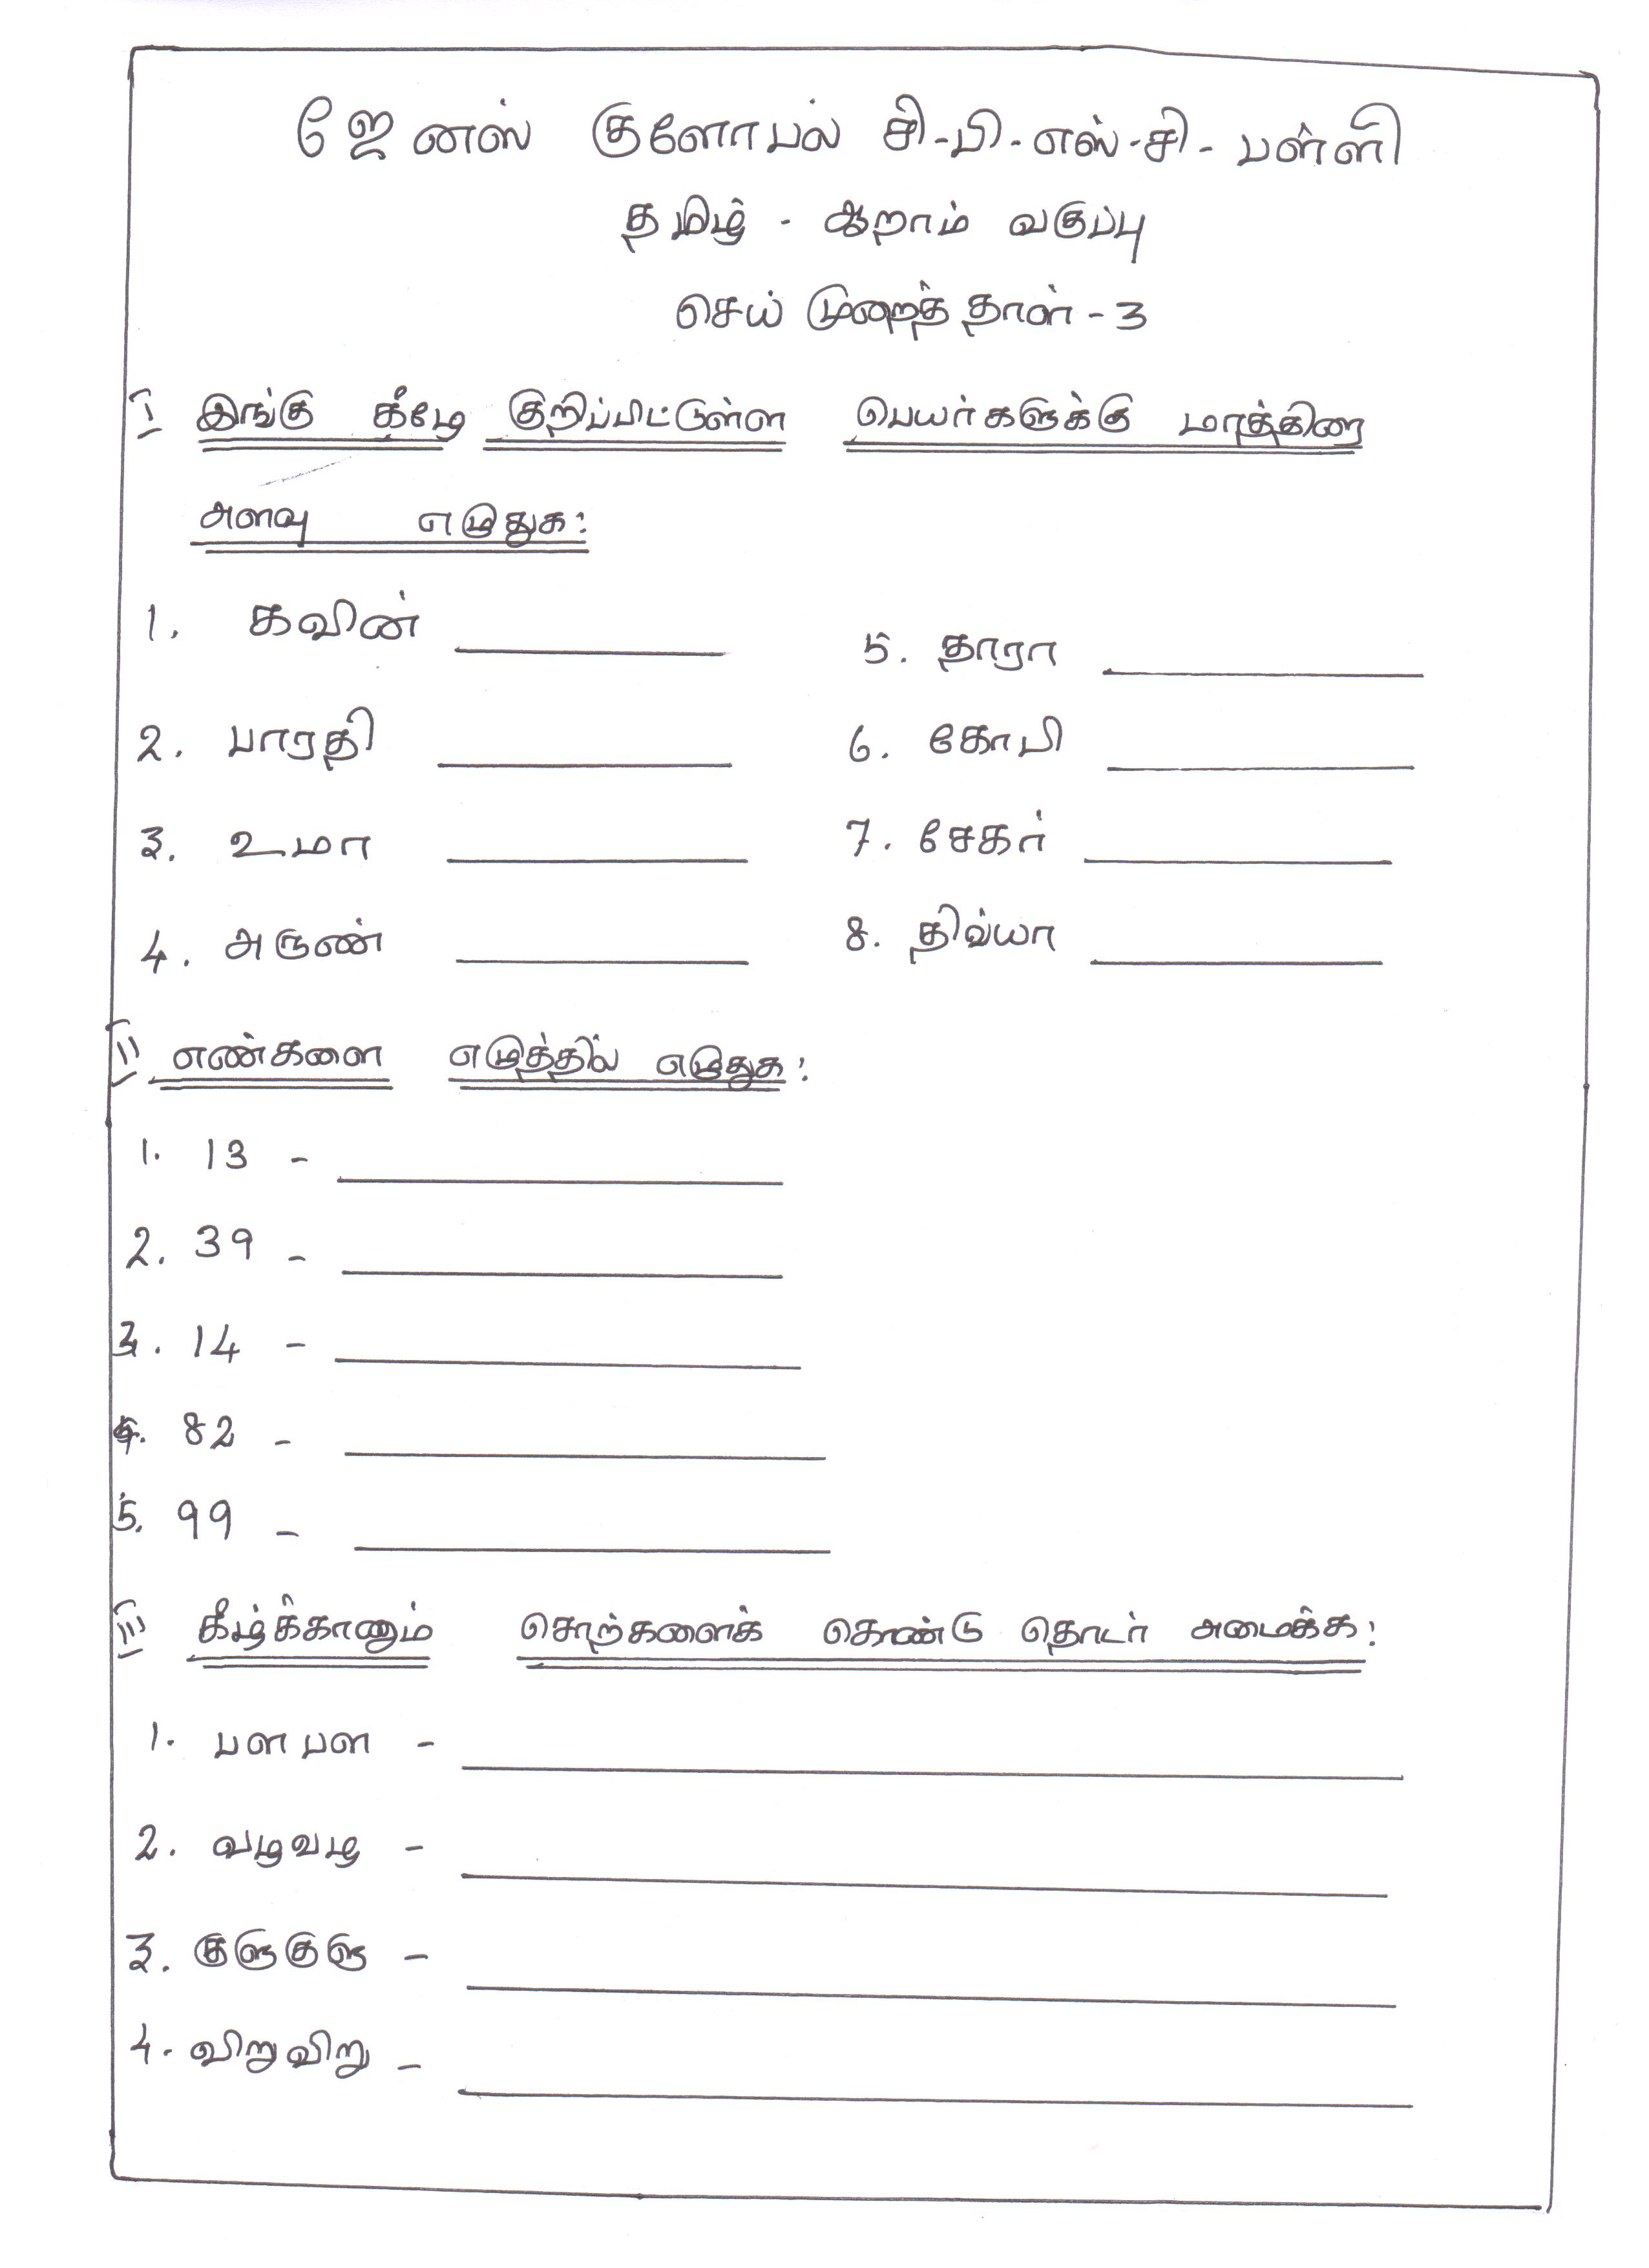 ஜேனஸ் குளோபல் சி-பி-எஸ்-சி- பள்ளி
தமிழ் - ஆறாம் வகுப்பு
செய் முறைத் தாள் - 3
I இங்கு கீழே குறிப்பிட்டுள்ள பெயர்களுக்கு மாத்திரை
அளவு எழுதுக:
1. கவின்
5. தாரா
2. பாரதி
6. கோபி
3. உமா
7. சேகர்
4. அருண்
8. திவ்யா
II எண்களை எழுத்தில் எழுதுக:
1. 13 -
2. 39 -
3. 14 -
4. 82 -
5. 99 -
III கீழ்க்காணும் சொற்களைக் கொண்டு தொடர் அமைக்க:
1. பள பள -
2. வழவழ -
3. குளுகுளு -
4. விறு விறு -